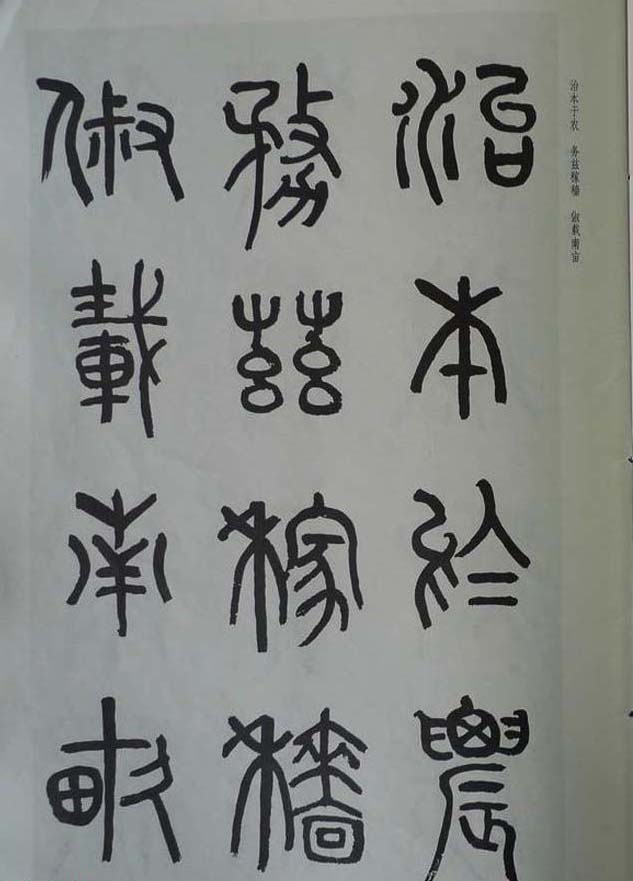 治本于农 务兹稼穑 俶载南亩
治本於農
務茲稼穡
俶載南畝